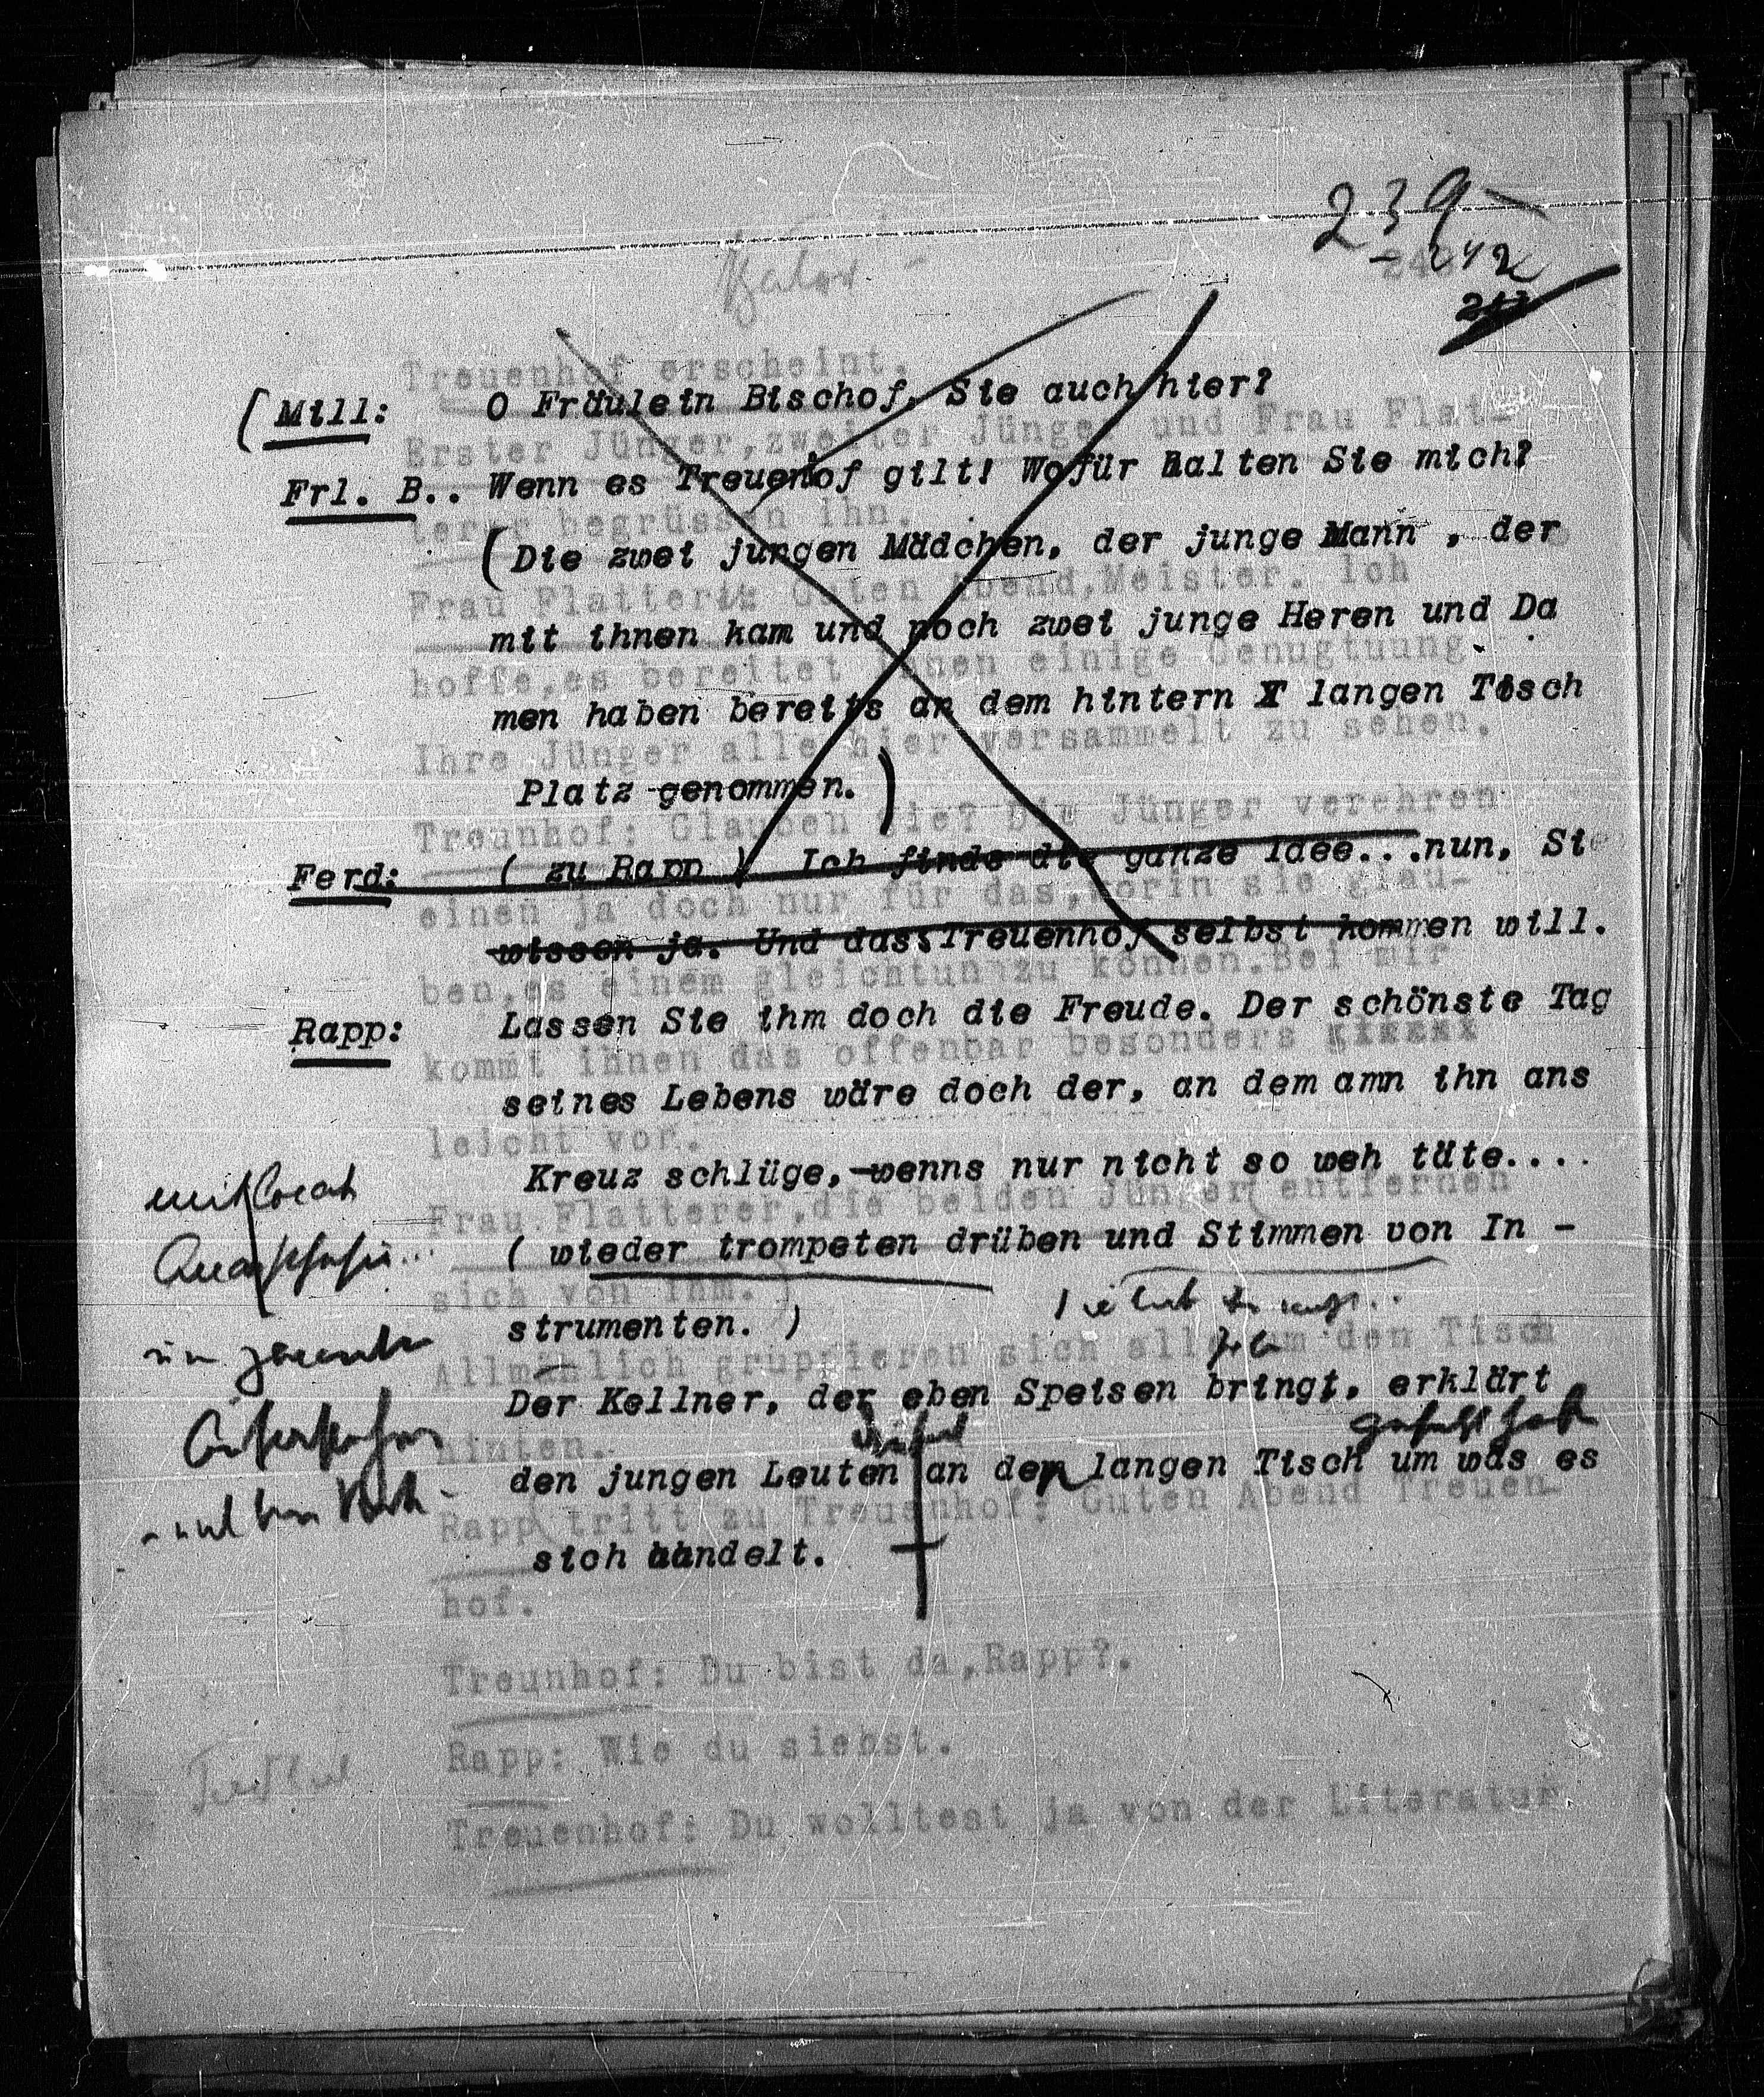 239
242
(Mill: O Fräulein Bischof, Sie auch hier?
Frl. B.. Wenn es Treuenhof gilt! Wofür halten Sie mich?
(Die zwei jungen Mädchen, der junge Mann , der
mit ihnen kam und noch zwei junge Heren und Da
men haben bereits an dem hintern langen Tisch
Platz genommen. )
Ferd: ( zu Rapp ) Ich finde die ganze Idee...nun, Sie
wissen ja. Und dass Treuenhof selbst kommen will.
Rapp: Lassen Sie ihm doch die Freude. Der schönste Tag
seines Lebens wäre doch der, an dem amn ihn ans
Kreuz schlüge,-wenns nur nicht so weh täte....
( wieder trompeten drüben und Stimmen von In -
strumenten. )
Der Kellner, der eben Speisen bringt, erklärt
den jungen Leuten an den langen Tisch um was es
sich handelt.
Treuenhof erscheint.
Erster Jünger,zweiter Jünger und Frau Flat-
terer begrüssen ihn.
Frau Flatterer: Guten Abend,Meister. Ich
hoffe,es bereitet Ihnen einige Genugtuung
Ihre Jünger alle hier versammelt zu sehen.
Treunhof: Glauben Sie? Die Jünger verehren
einen ja doch nur für das,worin sie glau-
ben,es einem gleichtun zu können.Bei mir
kommt ihnen das offenbar besonders
leicht vor.
Frau Flatterer,die beiden Jünger( entfernen
sich von ihm.)
Allmählich gruppieren sich alle um den Tisch
hinten.
Rapp( tritt zu Treuenhof: Guten Abend Treuen-
hof.
Treunhof: Du bist da,Rapp?.
Rapp: Wie du siehst.
Treuenhof: Du wolltest ja von der Literatur